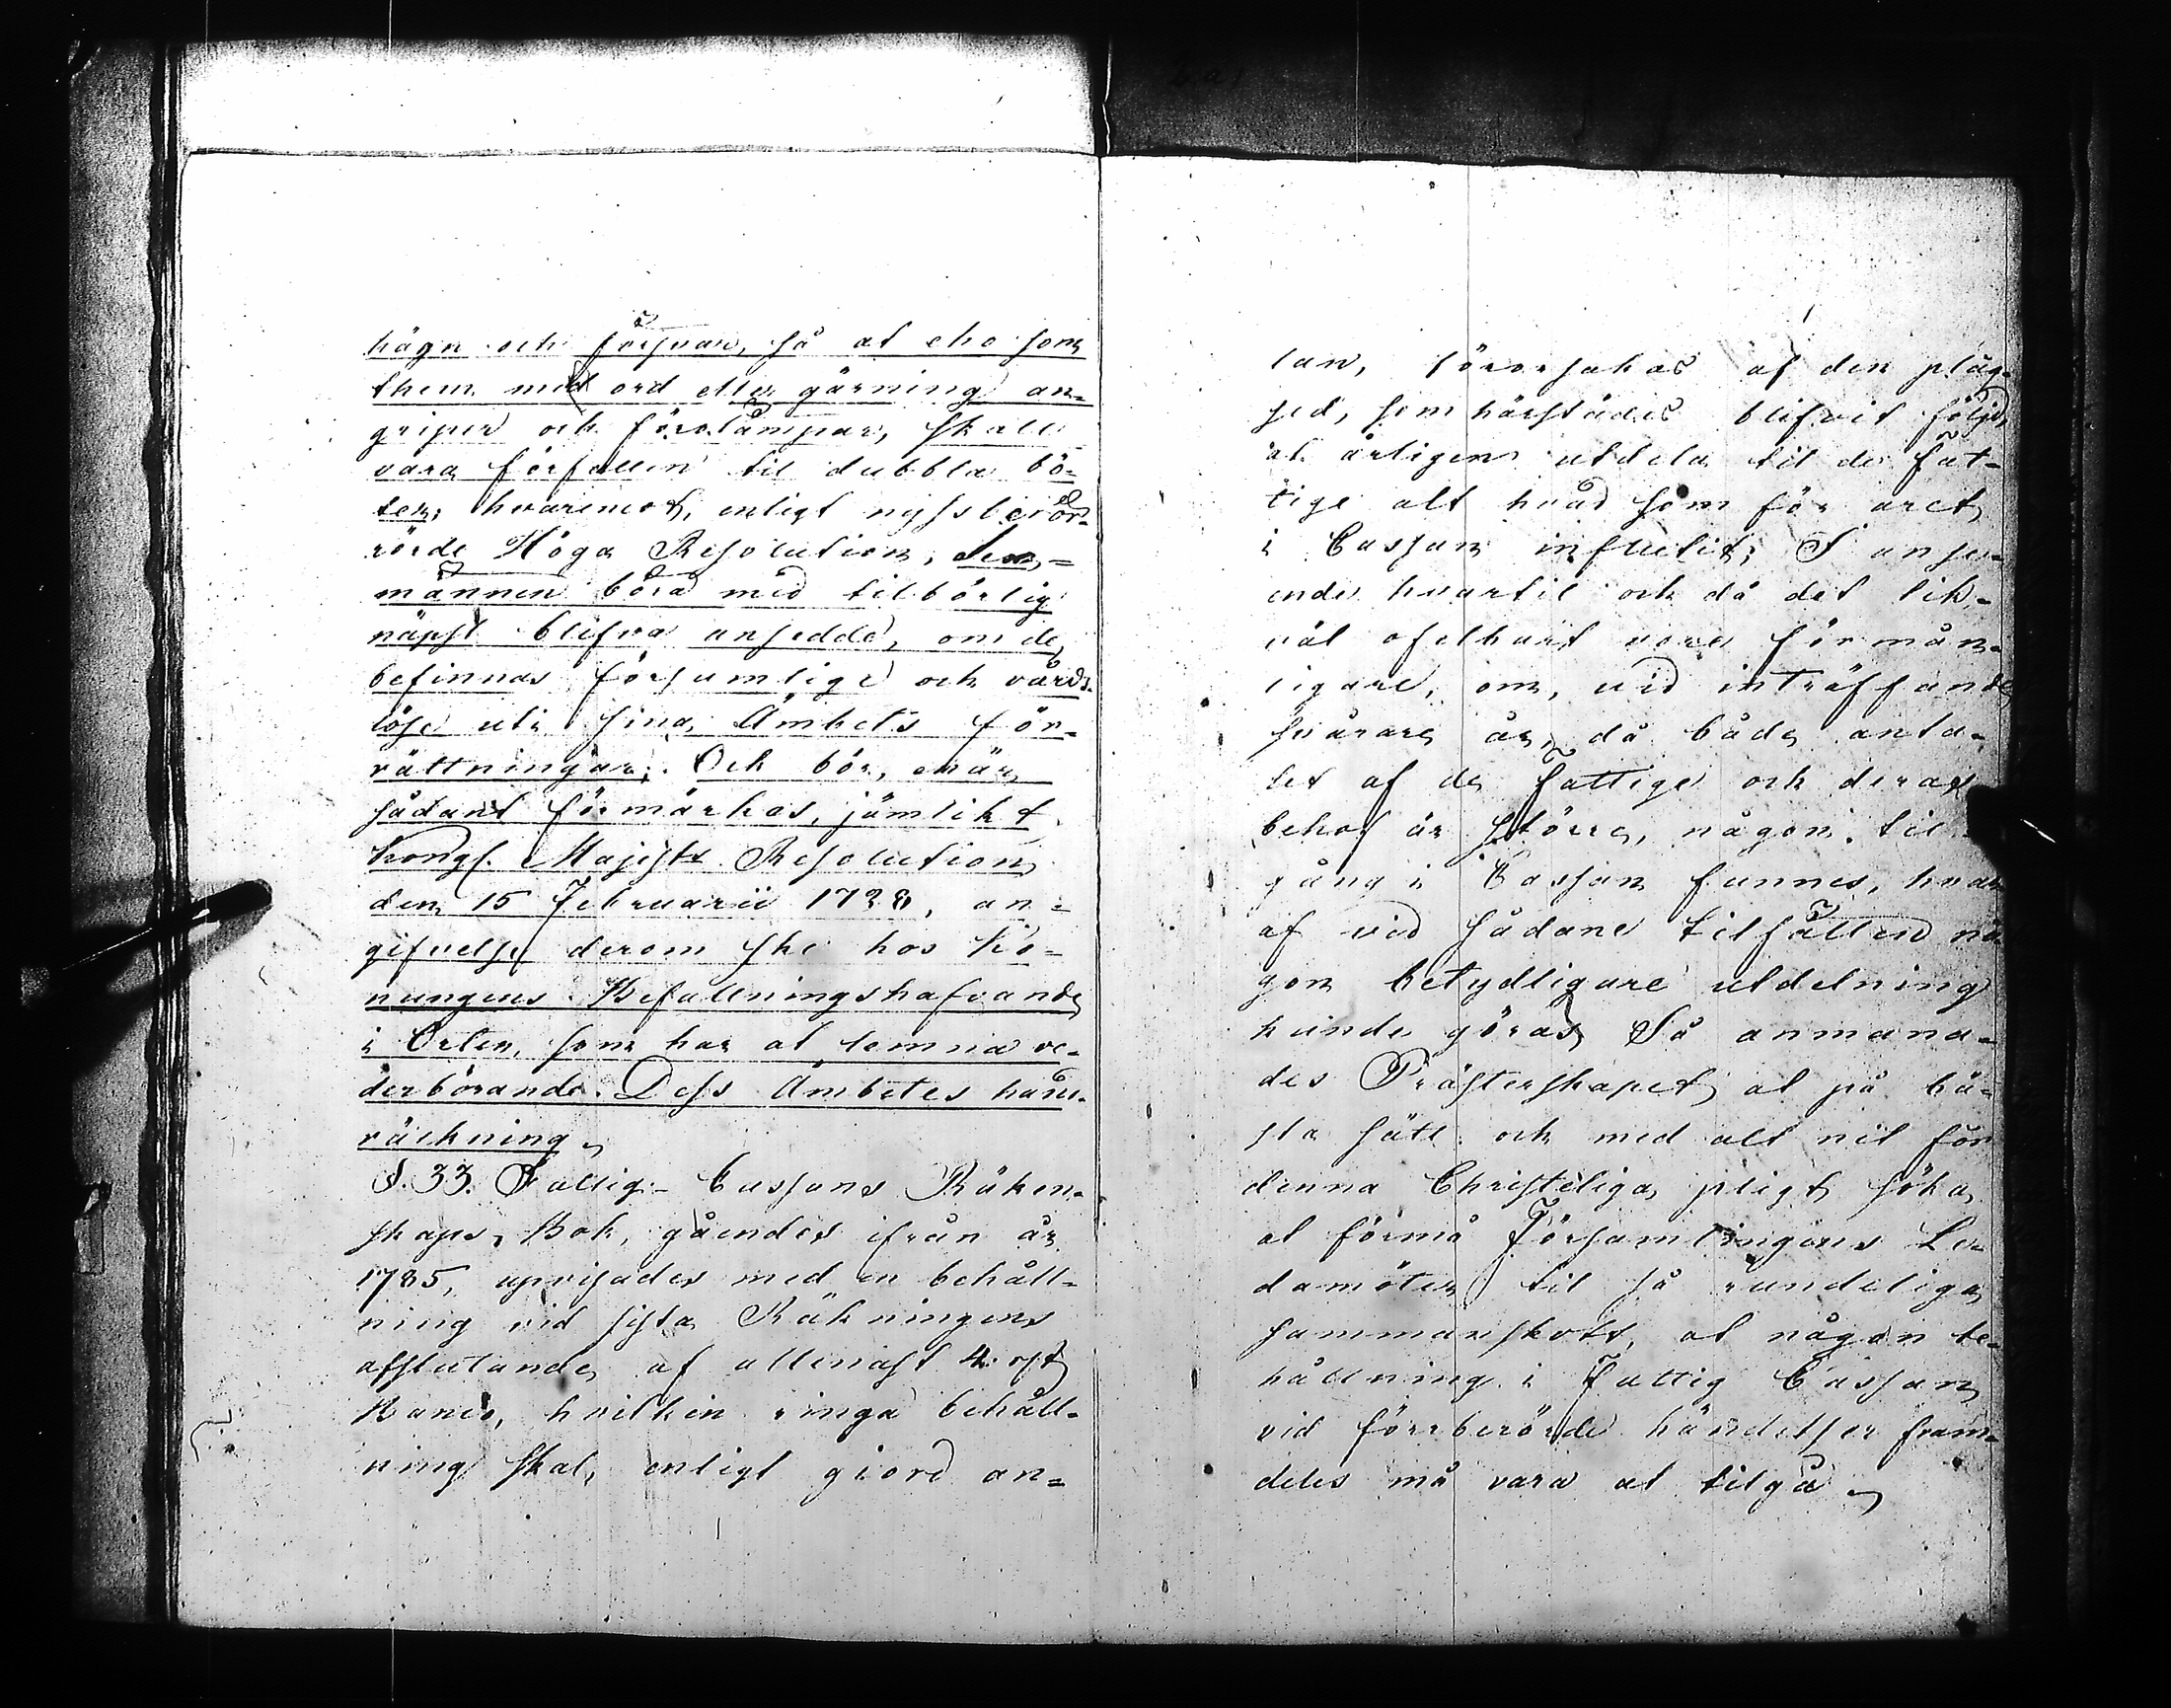 hägn och försvar, så at eho som
them med ord eller gärning an-
griper och förolämpar, skall
vara förfallen til dubbla bö-
ter; hvaremot, enligt nyssberör-
rörde Höga Resolution,
männen böra med tilbörlig
näpst blifva ansedde, om de
befinnas försumlige och vårds-
löse uti sina Ämbets för-
rättningar; Och bör, enär
sådant förmärkes, jämlikt
Kongl. Majsts Resolution
den 15 Februarii 1738, an-
gifvelse derom ske hos Ko-
nungens Befallningshafvande
i Orten, som har at lemna ve-
derbörande Dess Ämbetes hand-
räckning.
§. 33. Fattig-Cassans Räken-
skaps Bok, gåendes ifrån år
1785, upvisades med en behåll-
ning vid sista Räkningens
afslutande af allenast 4 rst
Banco, hvilken ringa behåll-
ning skal, enligt giord an-
lan, förorsakas af den pläg-
sed, som härstädes blifvit följd,
at årligen utdela til de Fat-
tige alt hvad som för året
i Cassan influtit; I anse-
ende hvartil och då det lik-
väl ofelbart vore förmån-
ligare, om, vid inträffande
svårare år, då både anta-
let af de fattige och deras
behof är större, någon til-
gång i Cassan funnes, hvar
af vid sådane tilfällen nå
gon betydligare utdelning
kunde göras; Så anmana-
des Prästerskapet, at på bä-
sta sätt och med alt nit för
denna Christeliga pligt söka
at förmå Församlingens Le-
damöter til så rundeliga
sammanskott, at någon be-
hållning i Fattig Cassan
vid förrberörde händelser fram-
deles må vara at tilgå.